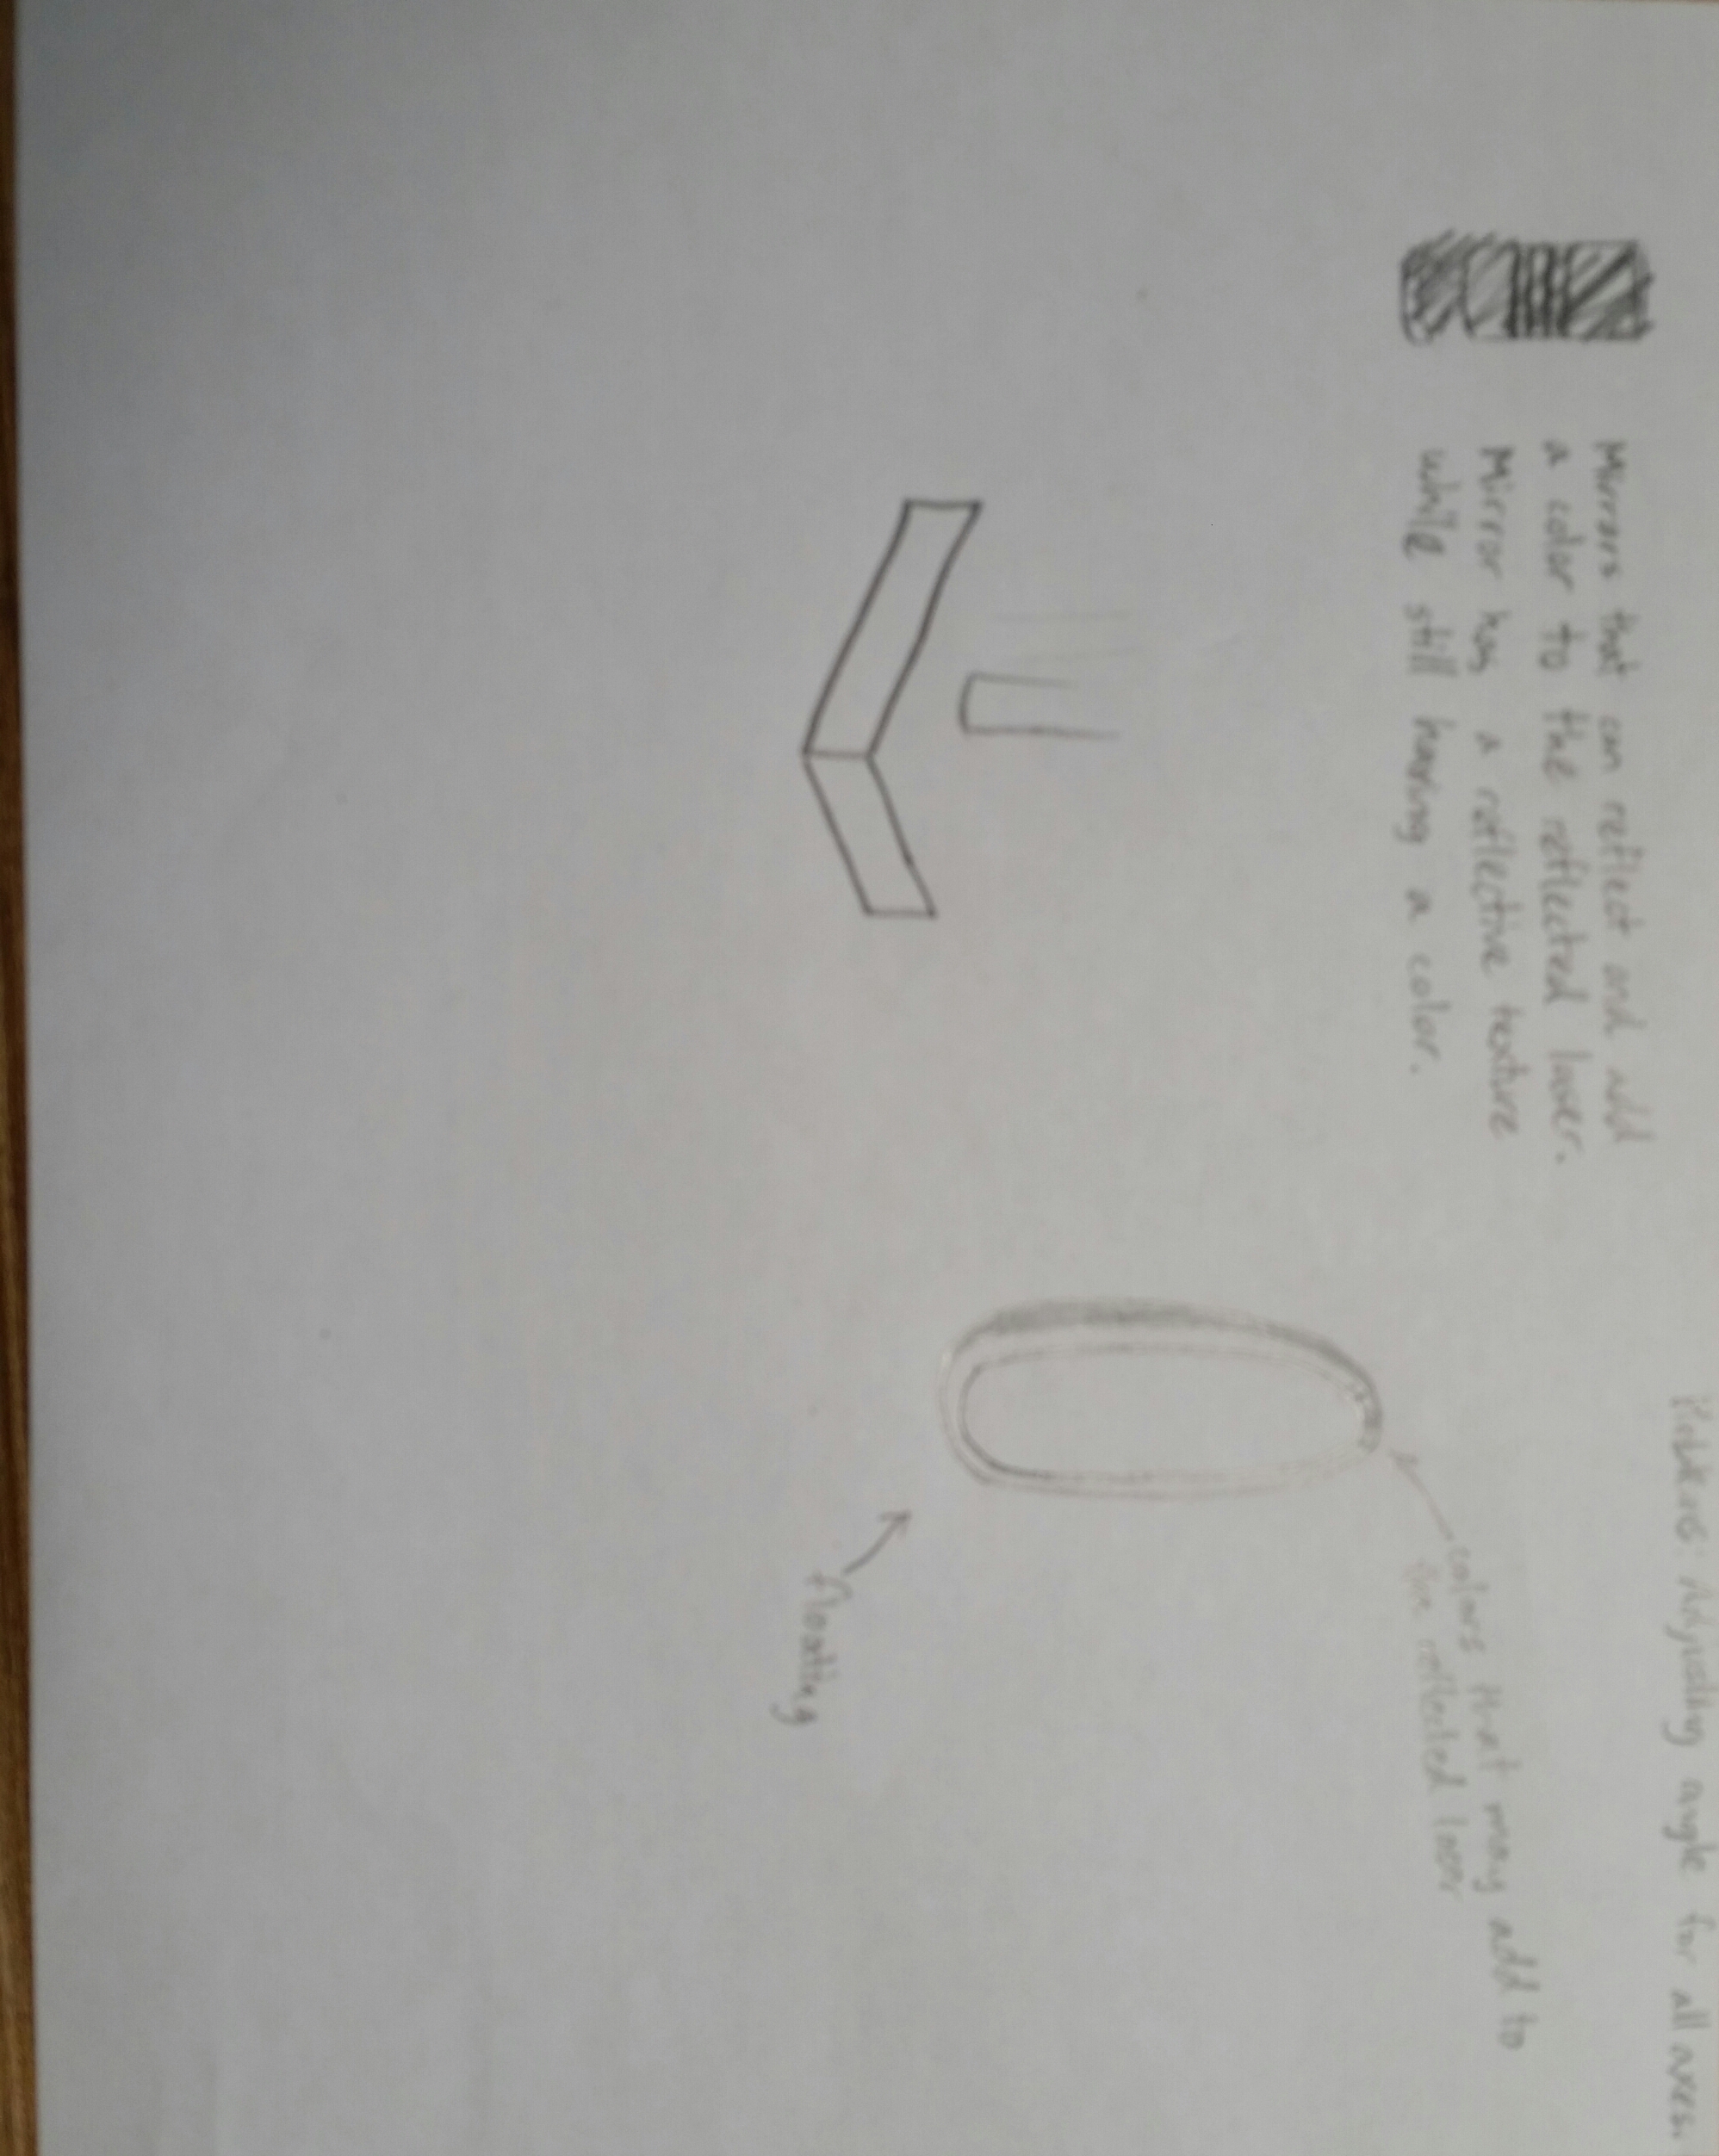 Problems: Adjusting angle for all axes.
Mirrors that can reflect and add
a color to the reflected laser.
Mirror has a reflective texture
while still having a color.
colors that may add to
the reflected laser
floating